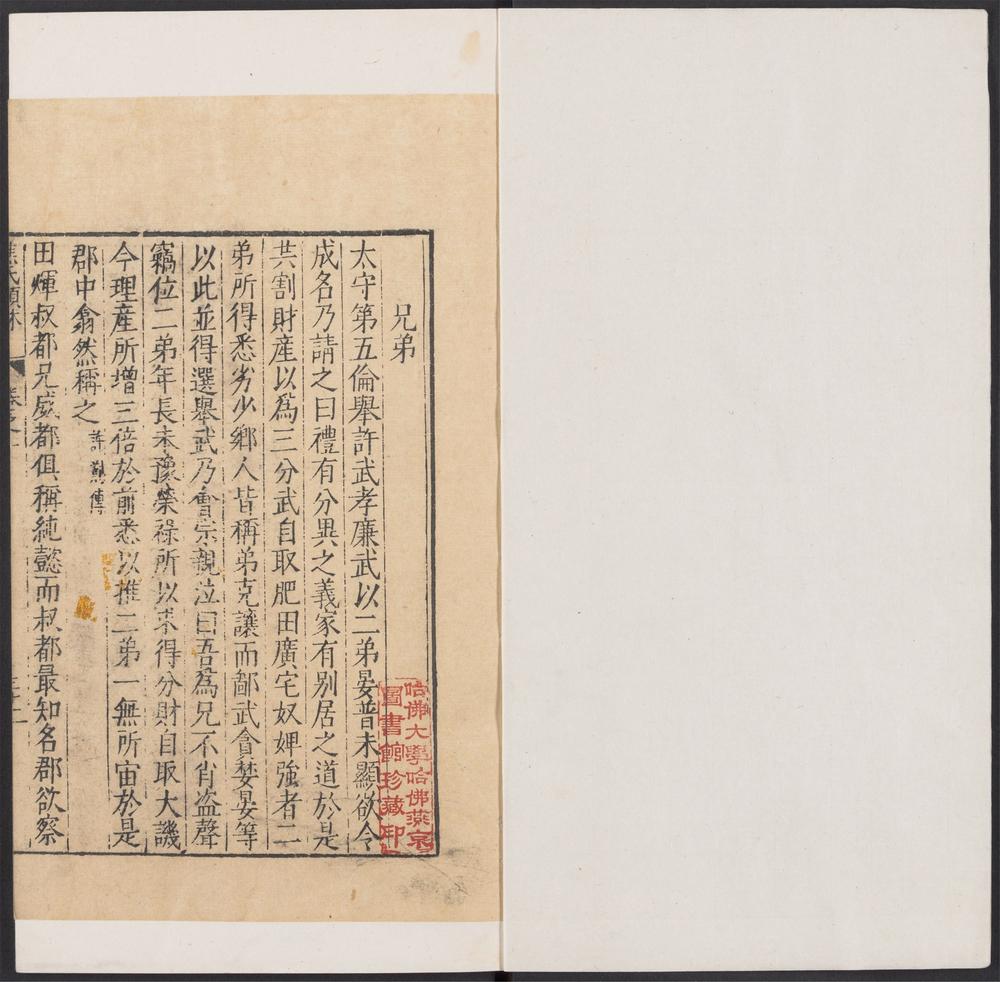 兄弟
太守第五倫舉許武孝廉武以二弟晏普未顯欲令
成名乃請之曰禮有分異之義家有别居之道於是
共割財產以爲三分武自取肥田廣宅奴婢強者二
弟所得悉劣少鄉人皆稱弟克讓而鄙武貪婪晏等
以此並得選舉武乃會宗親泣曰吾爲兄不肖盗聲
竊位二弟年長未豫榮祿所以求得分財自取大譏
今理産所增三倍於前悉以推二弟一無所宙於是
郡中翕然稱之許荆傳
田煇叔都兄威都俱稱純懿而叔都最知名郡欲察
焦氏類林
卷之一
哈佛大學哈佛燕京
圖書館珍藏印